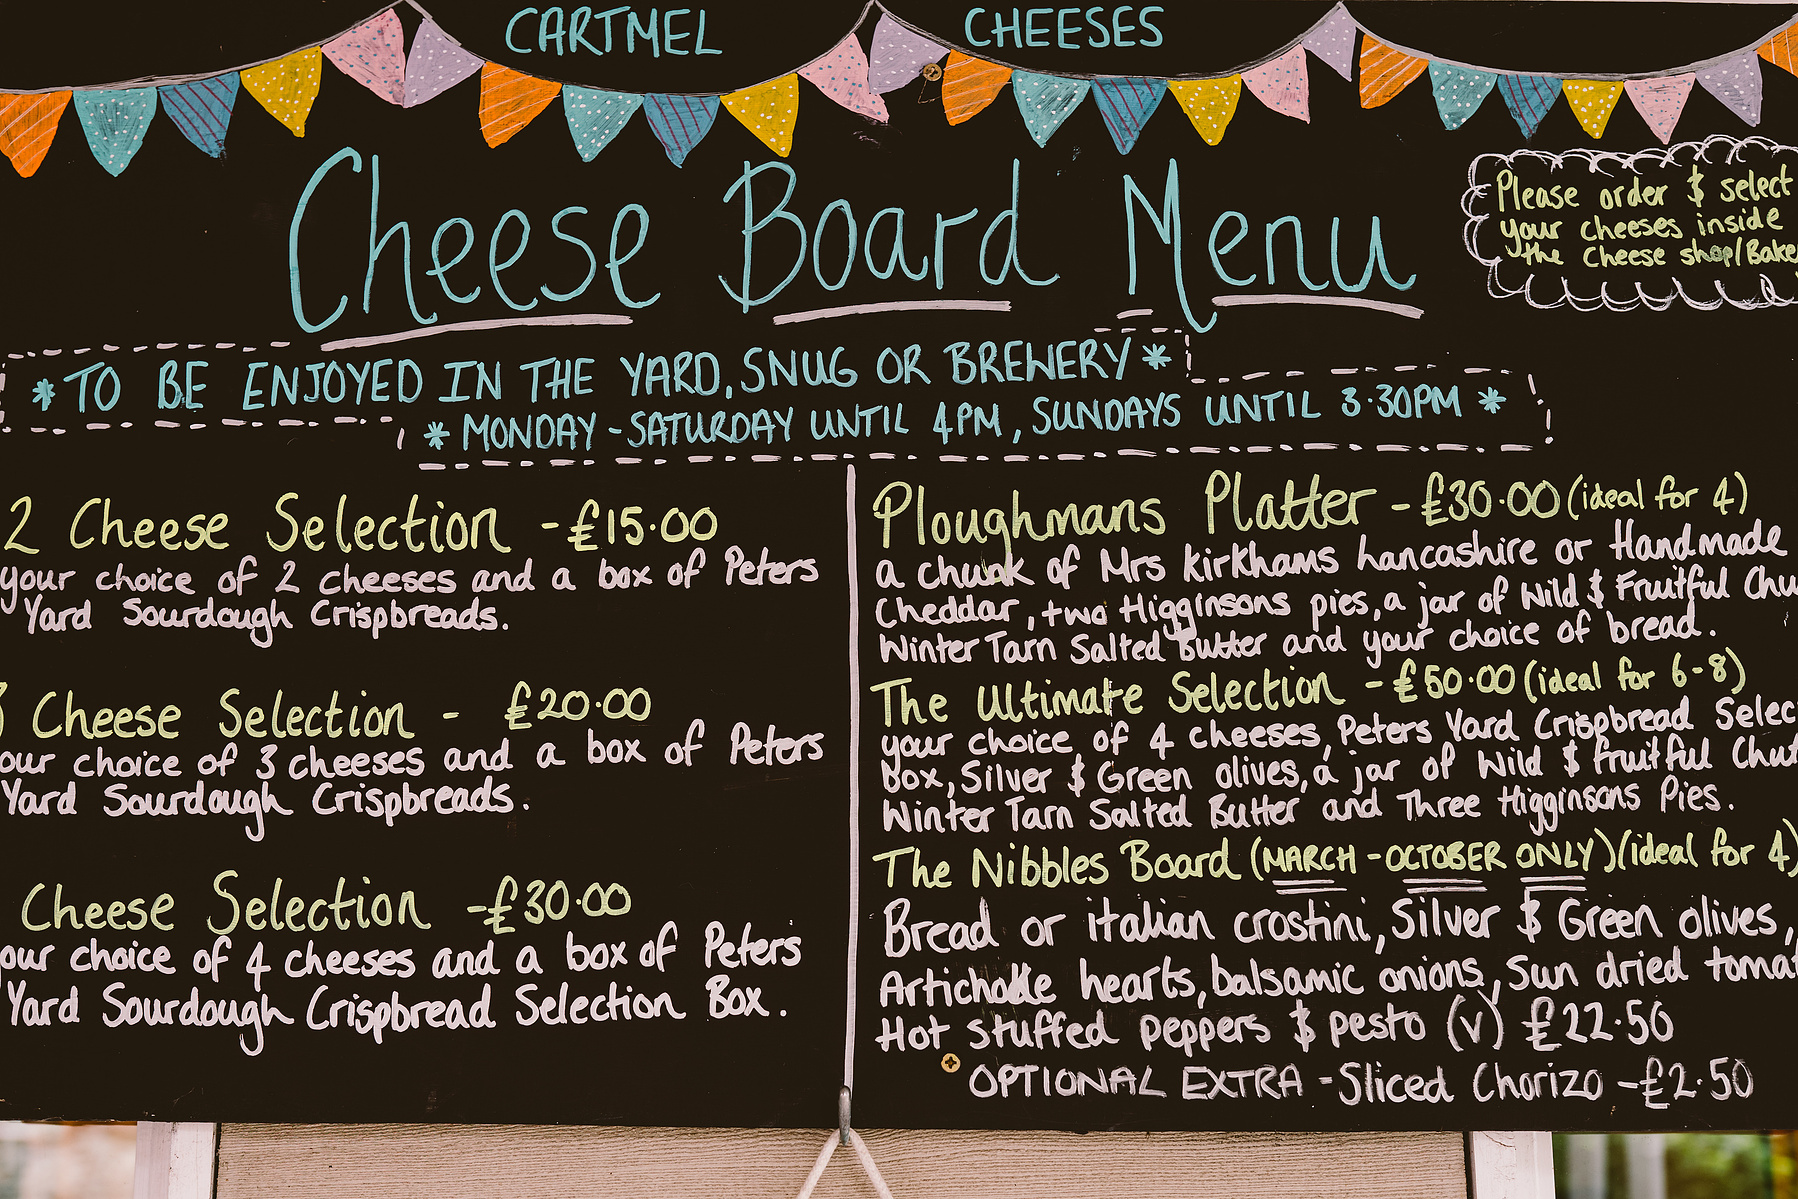 CARTMEL CHEESES
Cheese Board Menu
Please order & select
your cheeses inside
the Cheese shop/Bake
*TO BE ENJOYED IN THE YARD, SNUG OR BREWERY*
*MONDAY-SATURDAY UNTIL 4PM, SUNDAYS UNTIL 3.30PM*
2 Cheese Selection - £15.00
your choice of 2 cheeses and a box of Peters
Yard Sourdough Crispbreads.
3 Cheese Selection - £20.00
our choice of 3 cheeses and a box of Peters
Yard Sourdough Crispbreads.
Cheese Selection - £30.00
our choice of 4 cheeses and a box of Peters
Yard Sourdough Crispbread Selection Box.
Ploughmans Platter - £30.00 (ideal for 4)
a chunk of Mrs Kirkhams Lancashire or Handmade
Cheddar, two Higginsons pies, a jar of Wild & Fruitful Chu
Winter Tarn Salted Butter and your choice of bread.
The Ultimate Selection - £50.00 (ideal for 6-8)
your choice of 4 cheeses, Peters Yard Crispbread Selec
box, Silver & Green olives, a jar of Wild & Fruitful Chut
Winter Tarn Salted Butter and Three Higginsons Pies.
The Nibbles Board (MARCH-OCTOBER ONLY) (ideal for 4)
Bread or italian crostini, Silver & Green olives,
Artichoke hearts, balsamic onions, Sun dried tomat
Hot stuffed peppers & pesto (v) £22.50
OPTIONAL EXTRA - Sliced Chorizo - £2.50